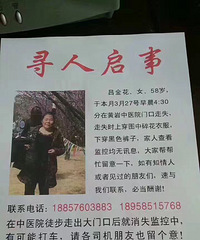 寻人启事
吕金花、女、58岁,
于本月3月27号早晨4:30
分在黄岩中医院门口走失,
走失时上穿图中碎花衣服,
下穿黑色裤子、家人查看
监控均无讯息、大家帮帮
忙留意一下、如有知情人
或者见过的朋友们、速与
我们联系、必当酬谢!
联系电话: 18857603883 18958515768
在中医院徒步走出大门口后就消失监控中、
有可能打车、请各司机朋友也留个意!